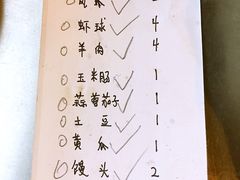 ○ 虾球 ✓ 4
○ 羊肉 ✓ 4
○ 玉米肠 ✓ 1
○ 蒜蓉茄子 ✓ 1
○ 土豆 ✓ 1
○ 黄瓜 ✓ 1
○ 馒头 ✓ 2